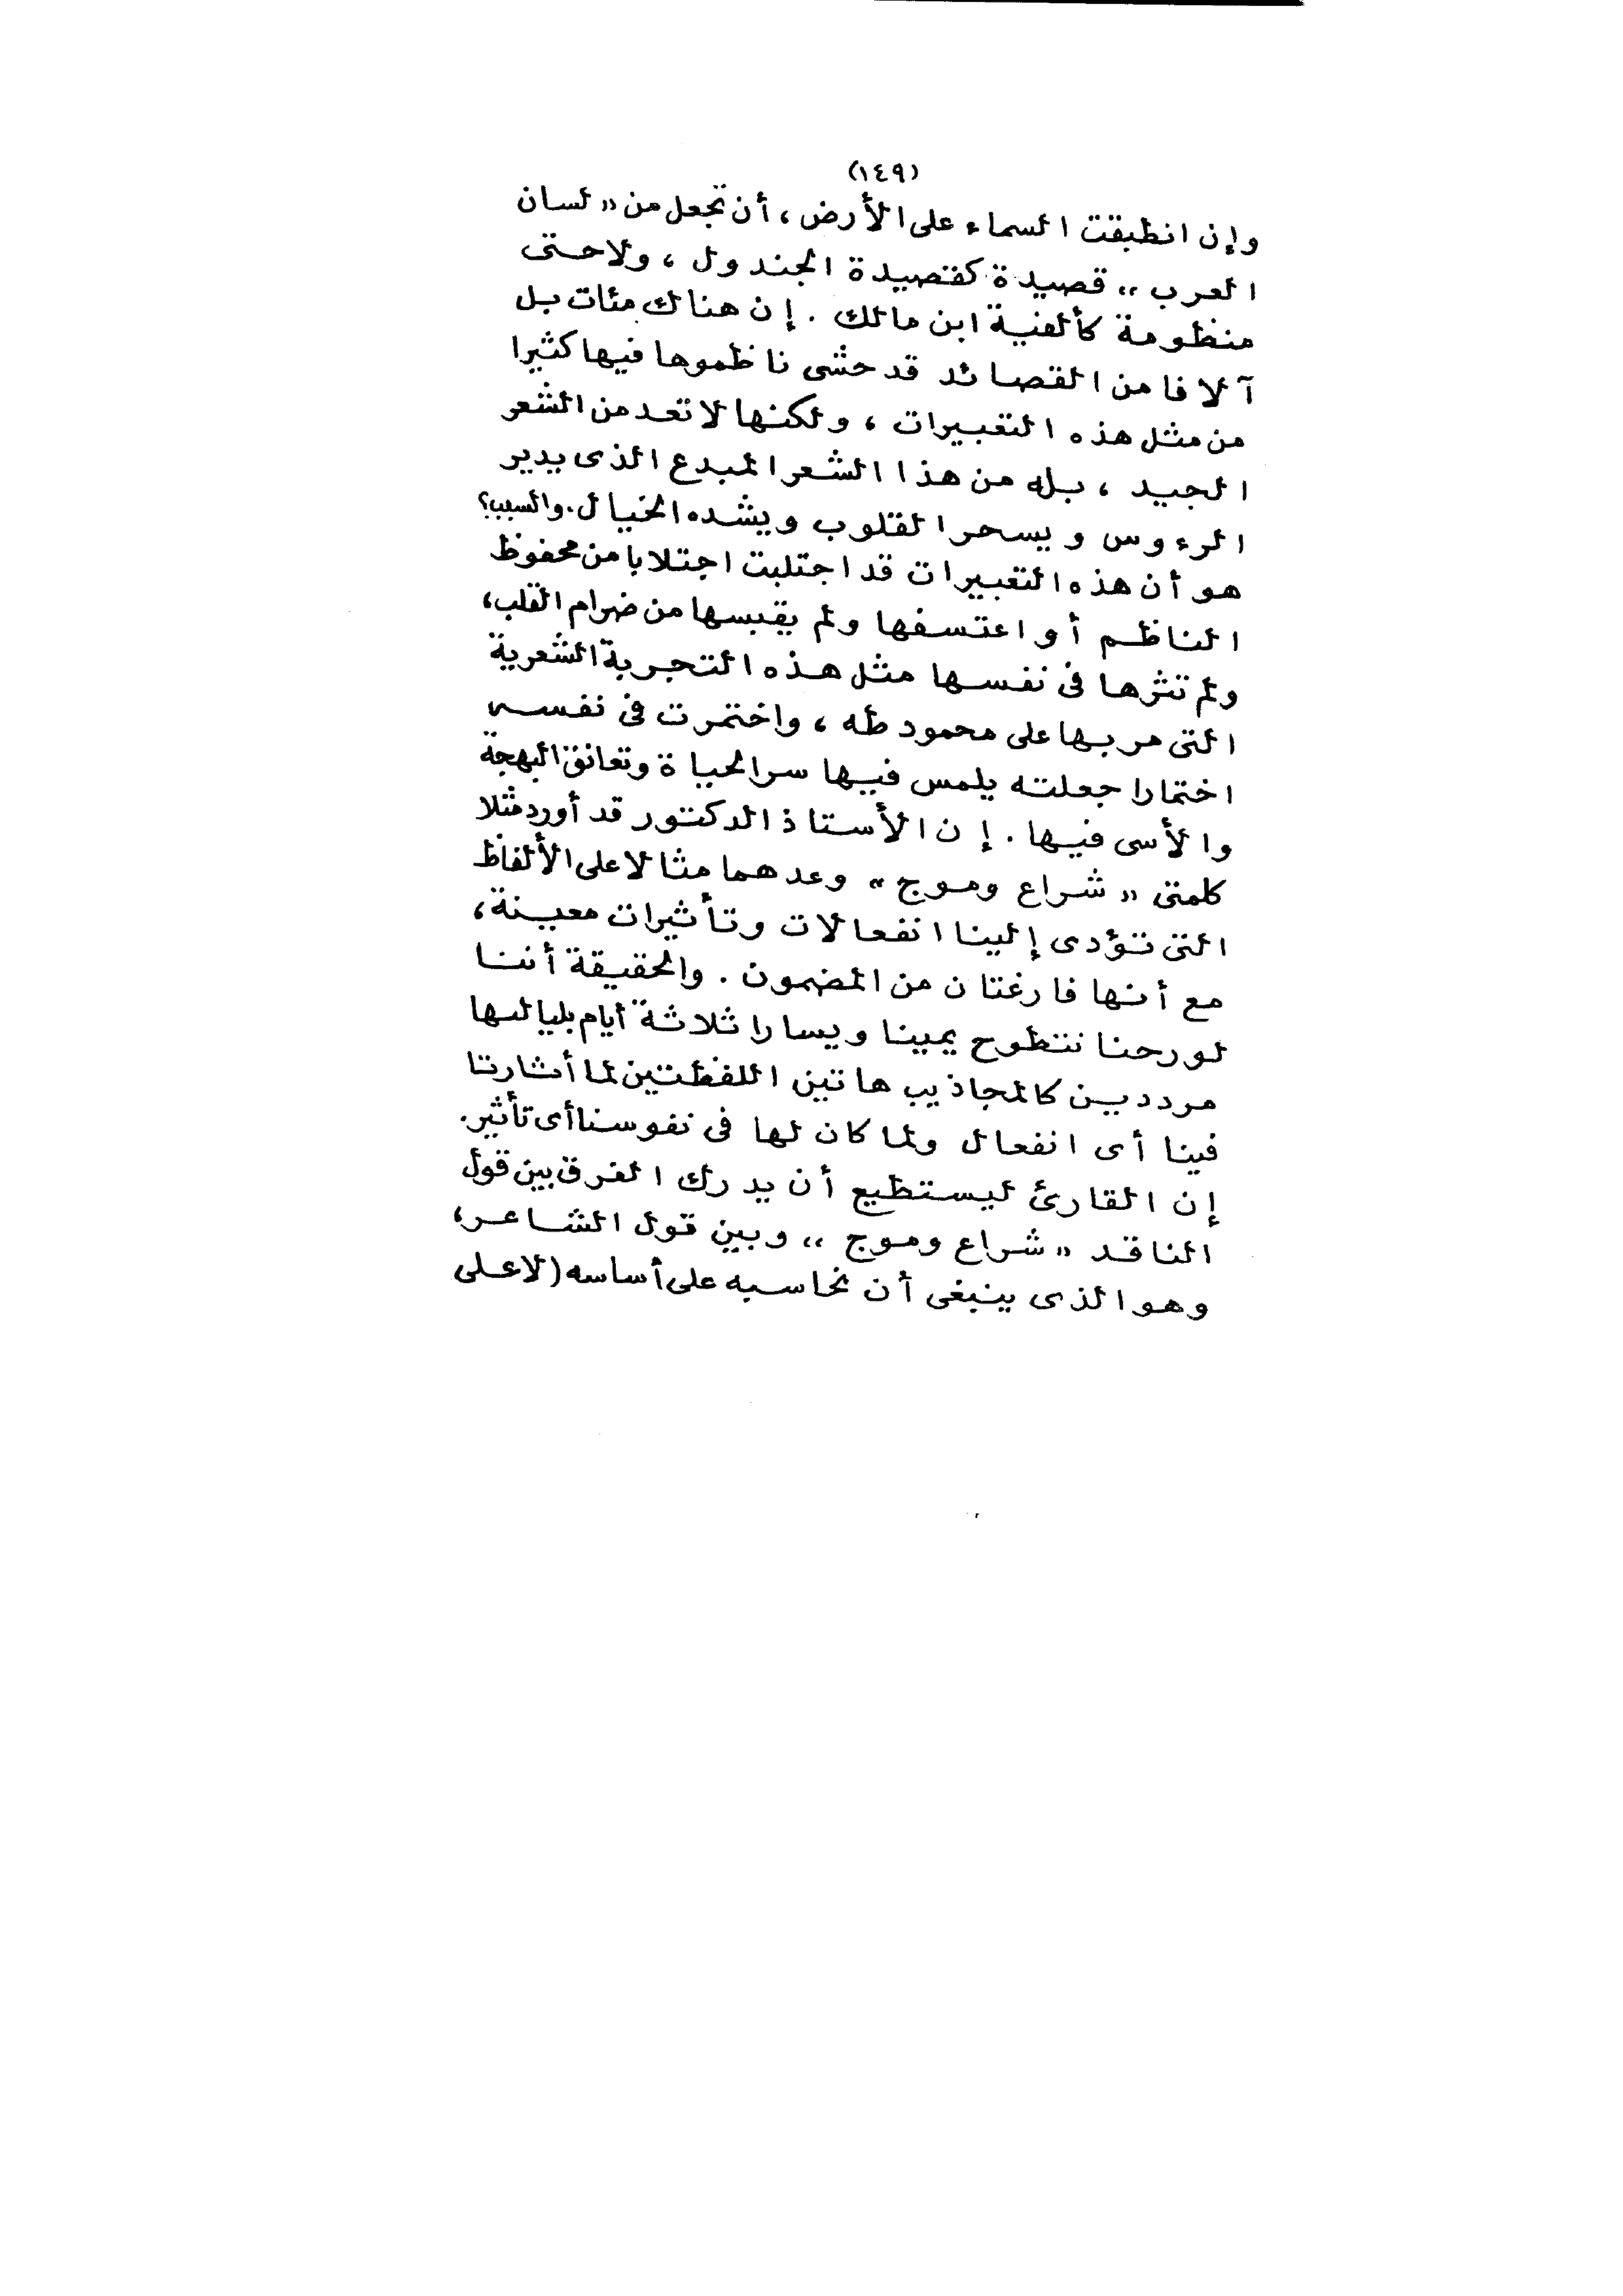 (١٤٩)
وإن انطبقت السماء على الأرض ، أن تجعل من « لسان
العرب » قصيدة كقصيدة الجندول ، ولا حتى
منظومة كألفية ابن مالك . إن هناك مئات بل
آلافا من القصائد قد حشى ناظموها فيها كثيرا
من مثل هذه التعبيرات ، ولكنها لا تعد من الشعر
الجيد ، بله من هذا الشعر المبدع الذى يدير
الرءوس ويسحر القلوب ويشده الخيال . والسبب؟
هو أن هذه التعبيرات قد اجتلبت اجتلابا من محفوظ
الناظم أو اعتسفها ولم يقبسها من ضرام القلب،
ولم تثرها فى نفسها مثل هذه التجربة الشعرية
التى مر بها على محمود طه ، واختمرت فى نفسه
اختمارا جعلته يلمس فيها سر الحياة وتعانق البهجة
والأسى فيها . إن الأستاذ الدكتور قد أورد مثلا
كلمتى « شراع وموج » وعدهما مثالا على الألفاظ
التى تؤدى إلينا انفعالات وتأثيرات معينة،
مع أنها فارغتان من المضمون . والحقيقة أننا
لو رحنا نتطوح يمينا ويسارا ثلاثة أيام بلياليها
مرددين كالمجاذيب هاتين اللفظتين لما أثارتا
فينا أى انفعال ولما كان لها فى نفوسنا أى تأثير.
إن القارئ ليستطيع أن يدرك الفرق بين قول
الناقد « شراع وموج » وبين قول الشاعر،
وهو الذى ينبغى أن نحاسبه على أساسه (لا على